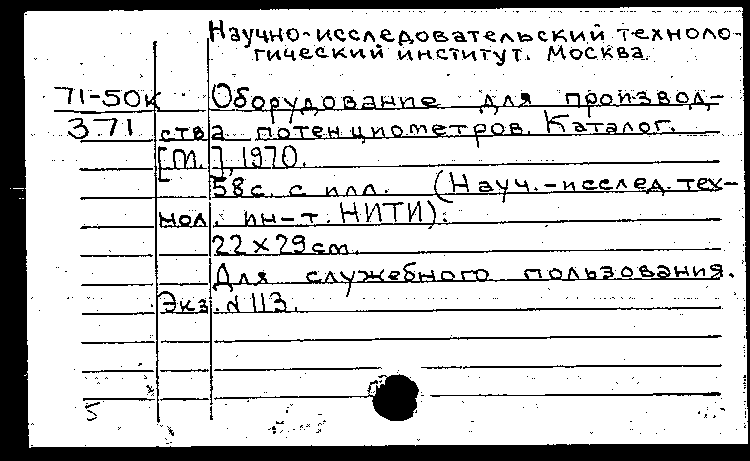 Научно-исследовательский техноло-
гический институт. Москва.
71-50к Оборудование для производ-
3.71 ства потенциометров. Каталог.
[М.], 1970.
58с. с илл. (Науч.-исслед. тех-
нол. ин-т. НИТИ).
22×29см.
Для служебного пользования.
Экз. № 113.
5